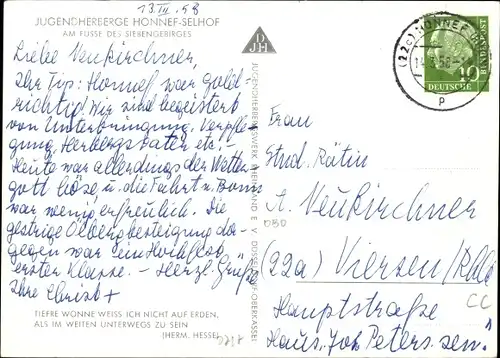 13.VII.58
JUGENDHERBERGE HONNEF-SELHOF
AM FUSSE DES SIEBENGEBIRGES
Liebe Neukirchner,
Ihr Tip: Honnef war gold-
richtig! Wir sind begeistert
von Unterbringung, Verpfle-
gung, Herbergsvater etc! -
Heute war allerdings der Wetter-
gott böse u. die Fahrt n. Bonn
war wenig erfreulich. Die
gestrige Ölbergbesteigung da-
gegen war ein Hochgenuß
erster Klasse. - Herzl. Grüße
Ihre Christ
TIEFRE WONNE WEISS ICH NICHT AUF ERDEN,
ALS IM WEITEN UNTERWEGS ZU SEIN
(HERM. HESSE)
DJH
JUGENDHERBERGSWERK RHEINLAND E. V. DÜSSELDORF-OBERKASSEL
(22c) HONNEF
p
10
DEUTSCHE BUNDESPOST
Frau
Stud. Rätin
A. Neukirchner
(22a) Viersen/Rhld
Hauptstraße
Haus Joh. Petersen.
CC